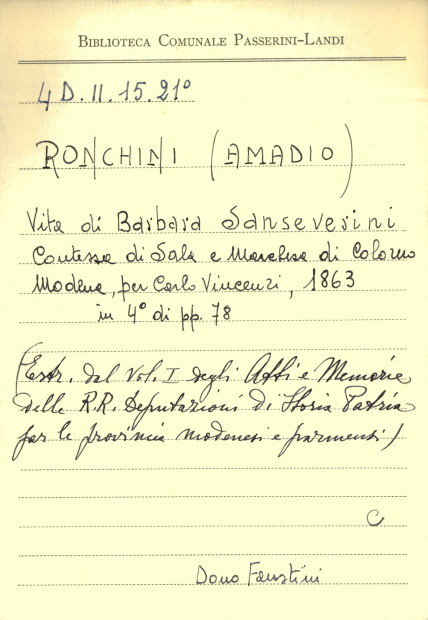 BIBLIOTECA COMUNALE PASSERINI-LANDI
4 D. II. 15. 21°
RONCHINI (AMADIO)
Vita di Barbara Sanseverini
Contessa di Sala e Marchesa di Colorno
Modena, per Carlo Vincenzi, 1863
in 4° di pp. 78
(Estr. dal Vol. I degli Atti e Memorie
delle R.R. Deputazioni di Storia Patria
per le provincie modenesi e parmensi)
C
Dono Faustini